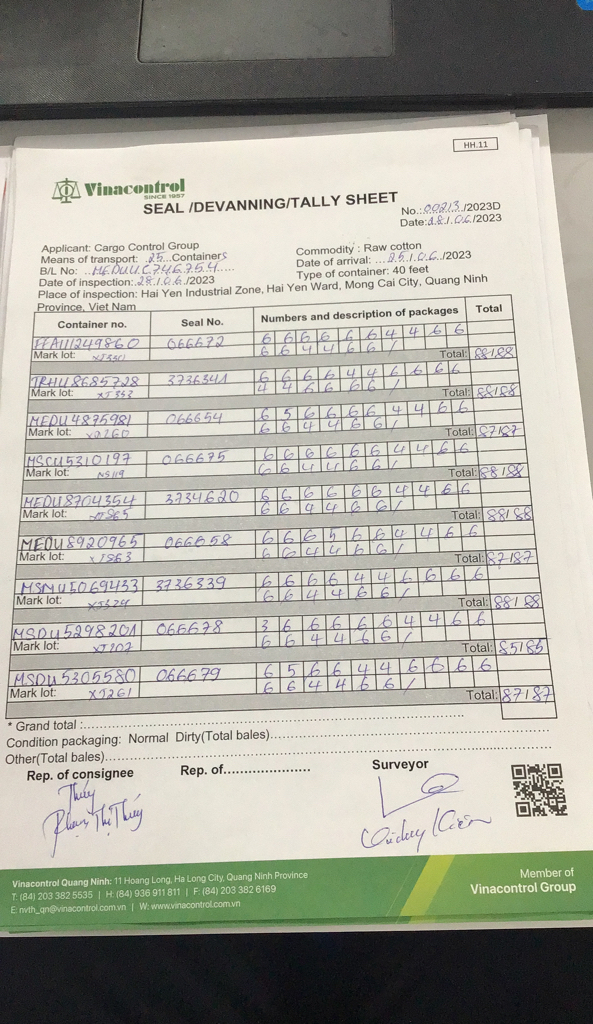 HH.11
Vinacontrol
SINCE 1957
SEAL /DEVANNING/TALLY SHEET
No.:00213/2023D
Date:28/06/2023
Applicant: Cargo Control Group
Means of transport: 25 Containers
Commodity : Raw cotton
B/L No: MEDUUC746754
Date of arrival: 25/06/2023
Date of inspection: 28/06/2023
Type of container: 40 feet
Place of inspection: Hai Yen Industrial Zone, Hai Yen Ward, Mong Cai City, Quang Ninh
Province, Viet Nam
Container no. Seal No. Numbers and description of packages Total
066672 6 6 6 6 6 6 4 4 6 6
Mark lot: 6 6 4 4 6 6 /
Total: 88188
TRHU8685728 3736341 6 6 6 6 4 4 6 6 6 6
Mark lot: XJ353 4 4 6 6 6 6 /
Total: 88188
MEDU4875981 066654 6 5 6 6 6 6 4 4 6 6
Mark lot: 6 6 4 4 6 6 /
Total: 87187
MSCU5310197 066675 6 6 6 6 6 6 4 4 6 6
Mark lot: 6 6 4 4 6 6 /
Total: 88188
MEDU8704354 3734620 6 6 6 6 6 6 4 4 6 6
Mark lot: 6 6 4 4 6 6 /
Total: 88188
MEDU8920965 066658 6 6 6 5 6 6 4 4 6 6
Mark lot: 6 6 4 4 6 6 /
Total: 87187
MSMU5069433 3736339 6 6 6 6 4 4 6 6 6 6
Mark lot: XJ324 6 6 4 4 6 6 /
Total: 88188
MSDU5298201 066678 3 6 6 6 6 6 4 4 6 6
Mark lot: 6 6 4 4 6 6 /
Total: 85185
MSDU5305580 066679 6 5 6 6 4 4 6 6 6 6
Mark lot: XJ261 6 6 4 4 6 6 /
Total: 87187
* Grand total :
Condition packaging: Normal Dirty(Total bales)
Other(Total bales)
Rep. of consignee Rep. of Surveyor
Thúy
Phạm Thị Thúy
Vinacontrol Quang Ninh: 11 Hoang Long, Ha Long City, Quang Ninh Province
T: (84) 203 382 5635 | H: (84) 936 911 811 | F: (84) 203 382 6169
E: nvth_qn@vinacontrol.com.vn | W: www.vinacontrol.com.vn
Member of
Vinacontrol Group